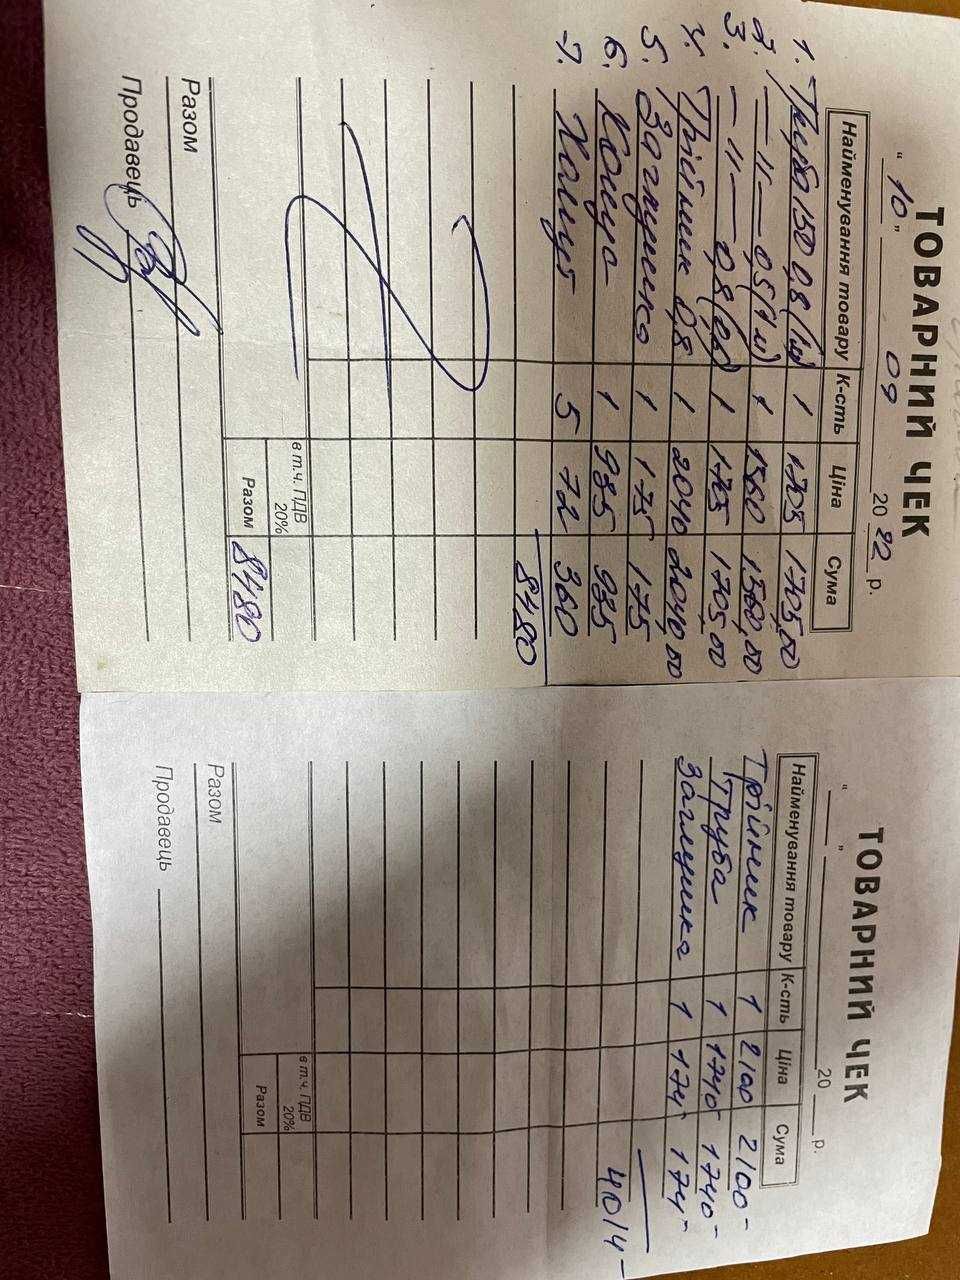 ТОВАРНИЙ ЧЕК
"10" 09 2022 р.
Найменування товару К-сть Ціна Сума
1. Труба 150 0,8 (1м) 1 1705 1705,00
2. —"— 0,5 (1м) 1 1560 1560,00
3. —"— 0,8 1 1705 1705,00
4. Трійник 0,8 1 2040 2040,00
5. Заглушка 1 175 175
6. 1 985 985
7. 5 72 360
8480
в т.ч. ПДВ 20%
Разом 8480
Разом
Продавець
ТОВАРНИЙ ЧЕК
" " 20 р.
Найменування товару К-сть Ціна Сума
Трійник 1 2100 2100-
Труба 1 1740 1740-
Заглушка 1 174- 174-
4014-
в т.ч. ПДВ 20%
Разом
Разом
Продавець